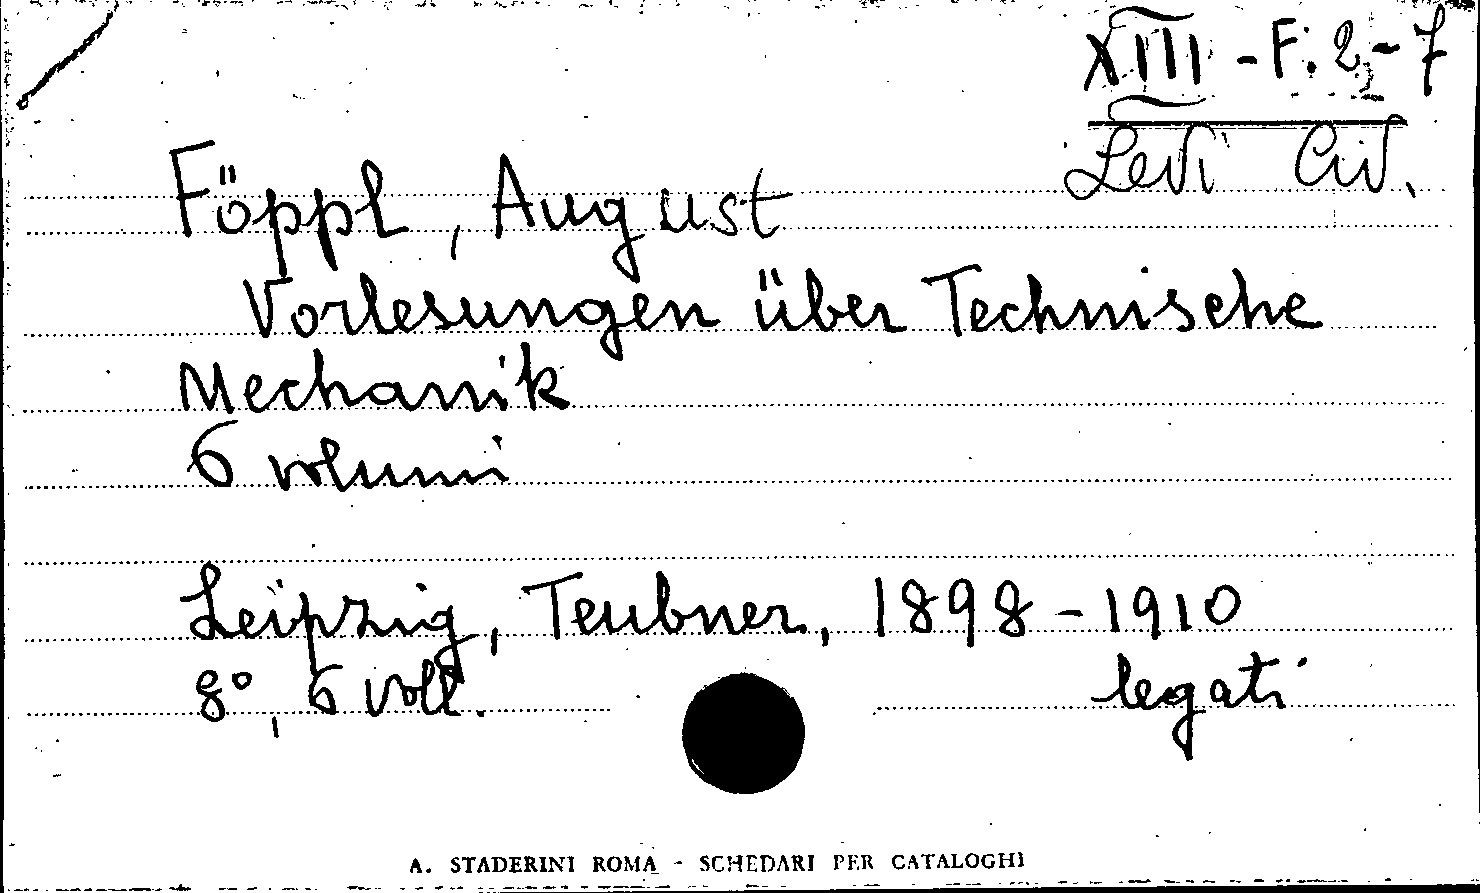 XIII - F. 2 - 7
Levi Civ.
Föppl, August
Vorlesungen über Technische
Mechanik
6 volumi
Leipzig, Teubner, 1898 - 1910
8°, 6 voll. legati
A. STADERINI ROMA - SCHEDARI PER CATALOGHI